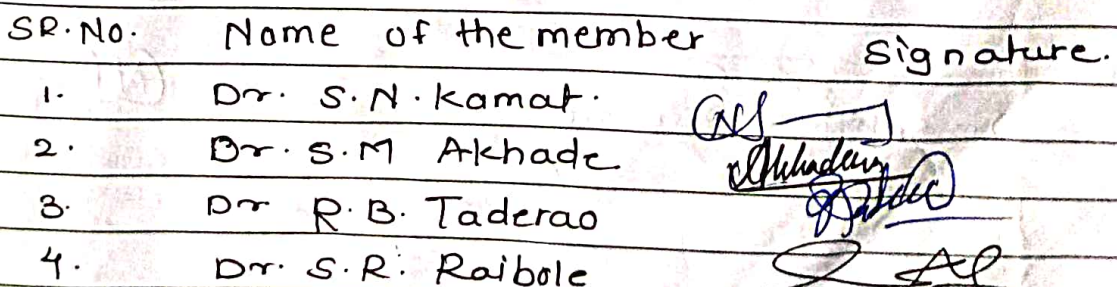 SR. No. Name of the member Signature.
1. Dr. S. N. Kamat.
2. Dr. S. M Akhade
3. Dr R. B. Taderao
4. Dr. S. R. Raibole